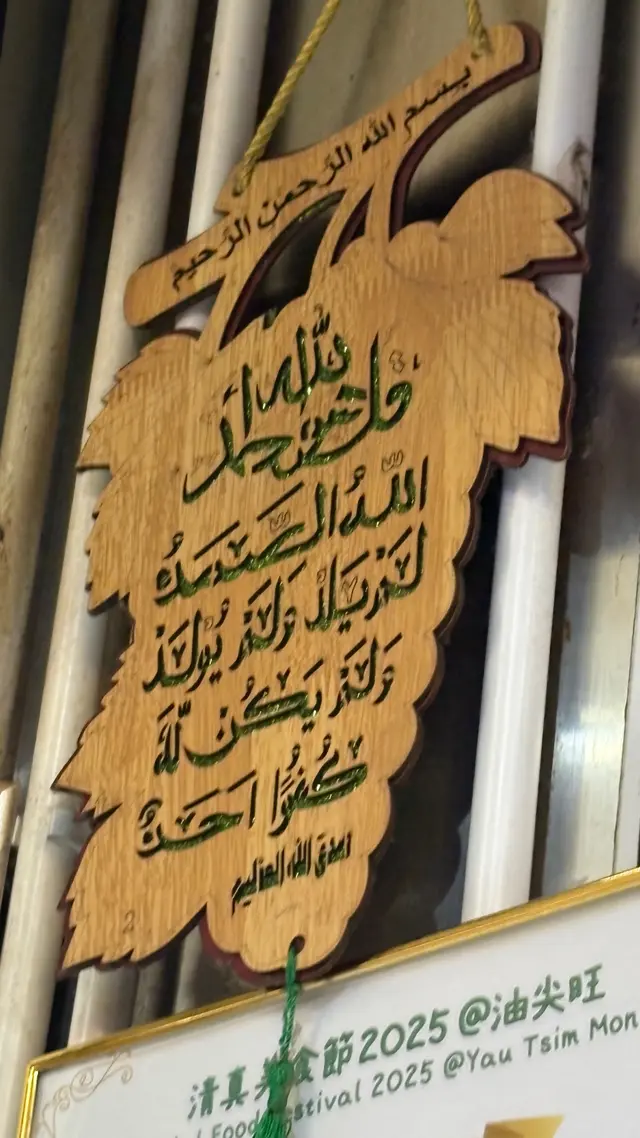 بسم الله الرحمن الرحيم
قل هو الله أحد
اللهُ الصَّمَدُ
لَمْ يَلِدْ وَلَمْ يُولَدْ
وَلَمْ يَكُنْ لَّهُ
كُفُوًا اَحَدٌ
صدق الله العظيم
2
清真美食節2025 @油尖旺
Food Festival 2025 @Yau Tsim Mon